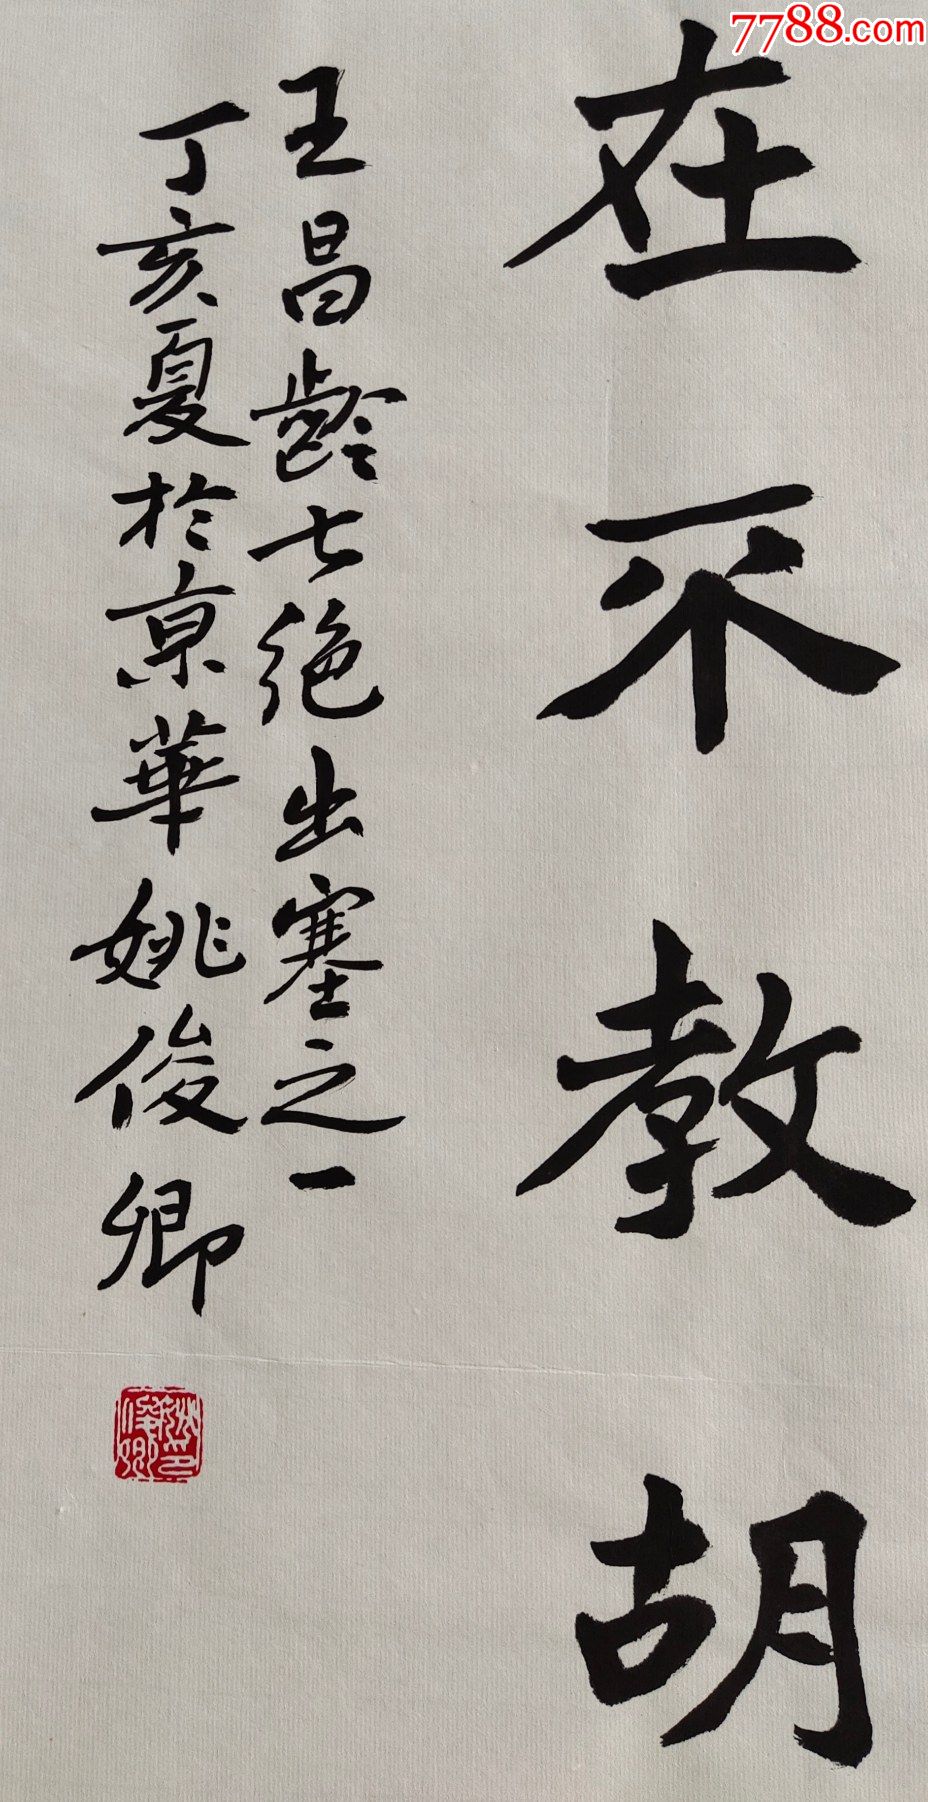 7788.com
在不教胡
王昌齡七絕出塞之一
丁亥夏於京華姚俊卿